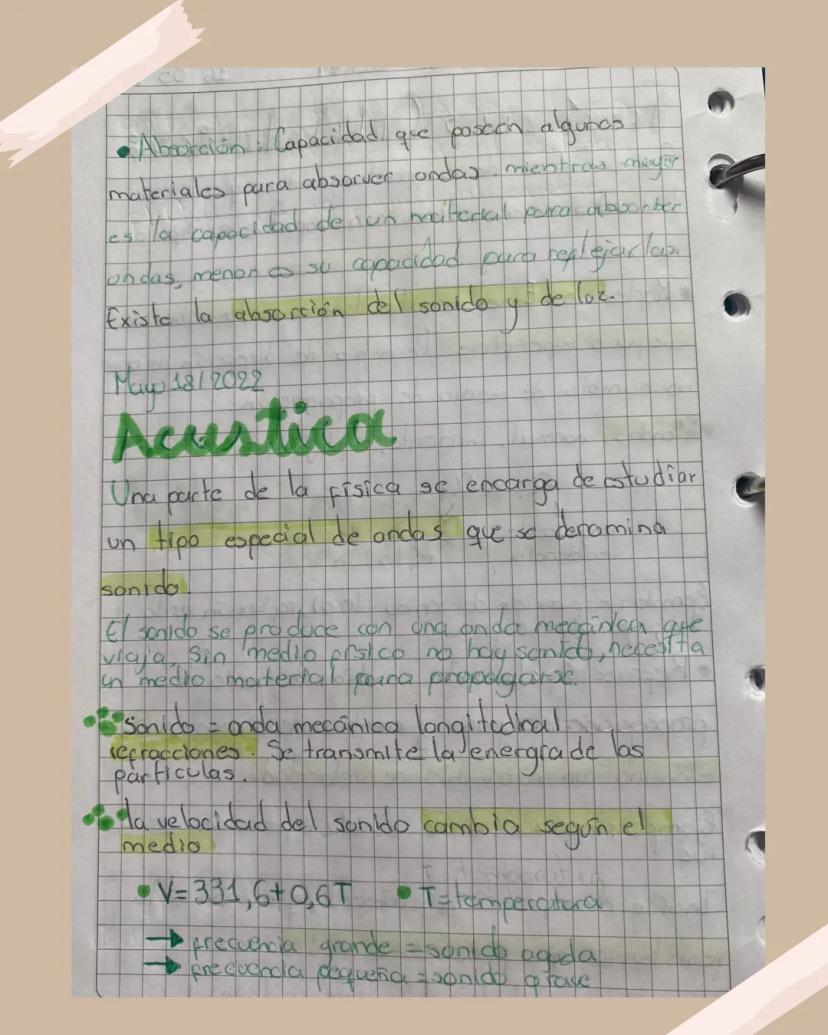 • Absorción: Capacidad que poseen algunos
materiales para absorver ondas. mientras mayor
es la capacidad de un material para absorber
ondas, menor es su capacidad para reflejar las.
Existe la absorción del sonido y de luz.
May 18/2022
Acustica
Una parte de la física se encarga de estudiar
un tipo especial de ondas que se denomina
sonido
El sonido se produce con una onda mecánica que
viaja. Sin medio físico no hay sonido, necesita
un medio material para propagarse.
Sonido = onda mecánica longitudinal
refracciones. Se transmite la energía de las
partículas.
la velocidad del sonido cambia según el
medio
• V=331,6+0,6T • T=temperatura
→ frecuencia grande = sonido aguda
→ frecuencia pequeña = sonido grave